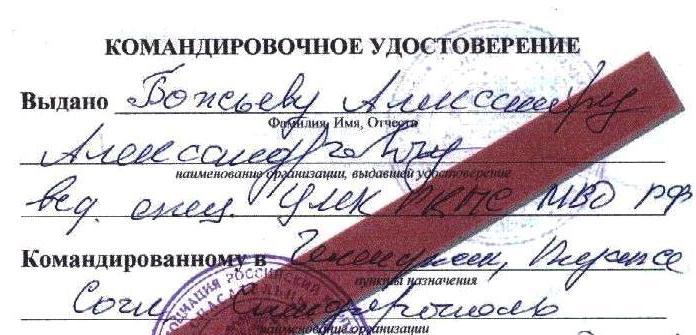 КОМАНДИРОВОЧНОЕ УДОСТОВЕРЕНИЕ
Выдано Божьеву Александру
Фамилия, Имя, Отчество
Александровичу
наименование организации, выдавшей удостоверение
вед. спец. МВД РФ
Командированному в Геленджик, Туапсе
пункты назначения
Сочи, Симферополь
наименование организации